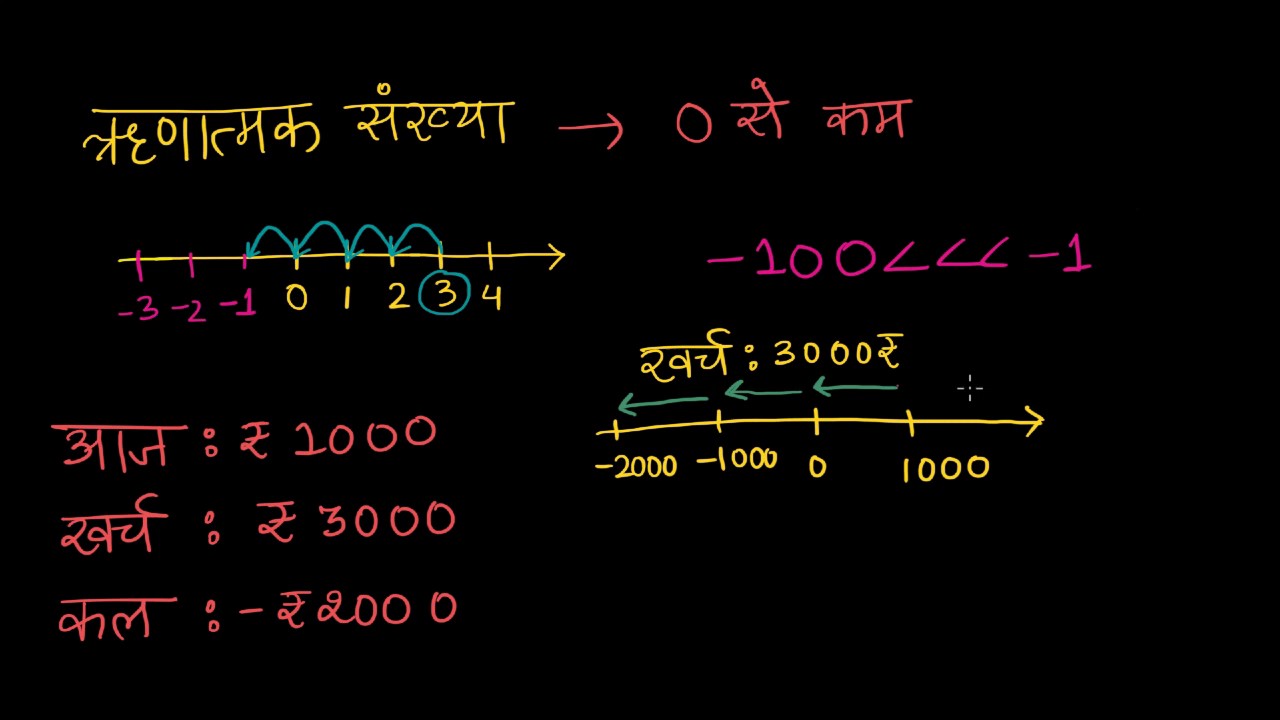 ऋणात्मक संख्या → 0 से कम
-3 -2 -1 0 1 2 3 4
-100<<<-1
खर्च : 3000₹
-2000 -1000 0 1000
आज : ₹ 1000
खर्च : ₹ 3000
कल : -₹2000